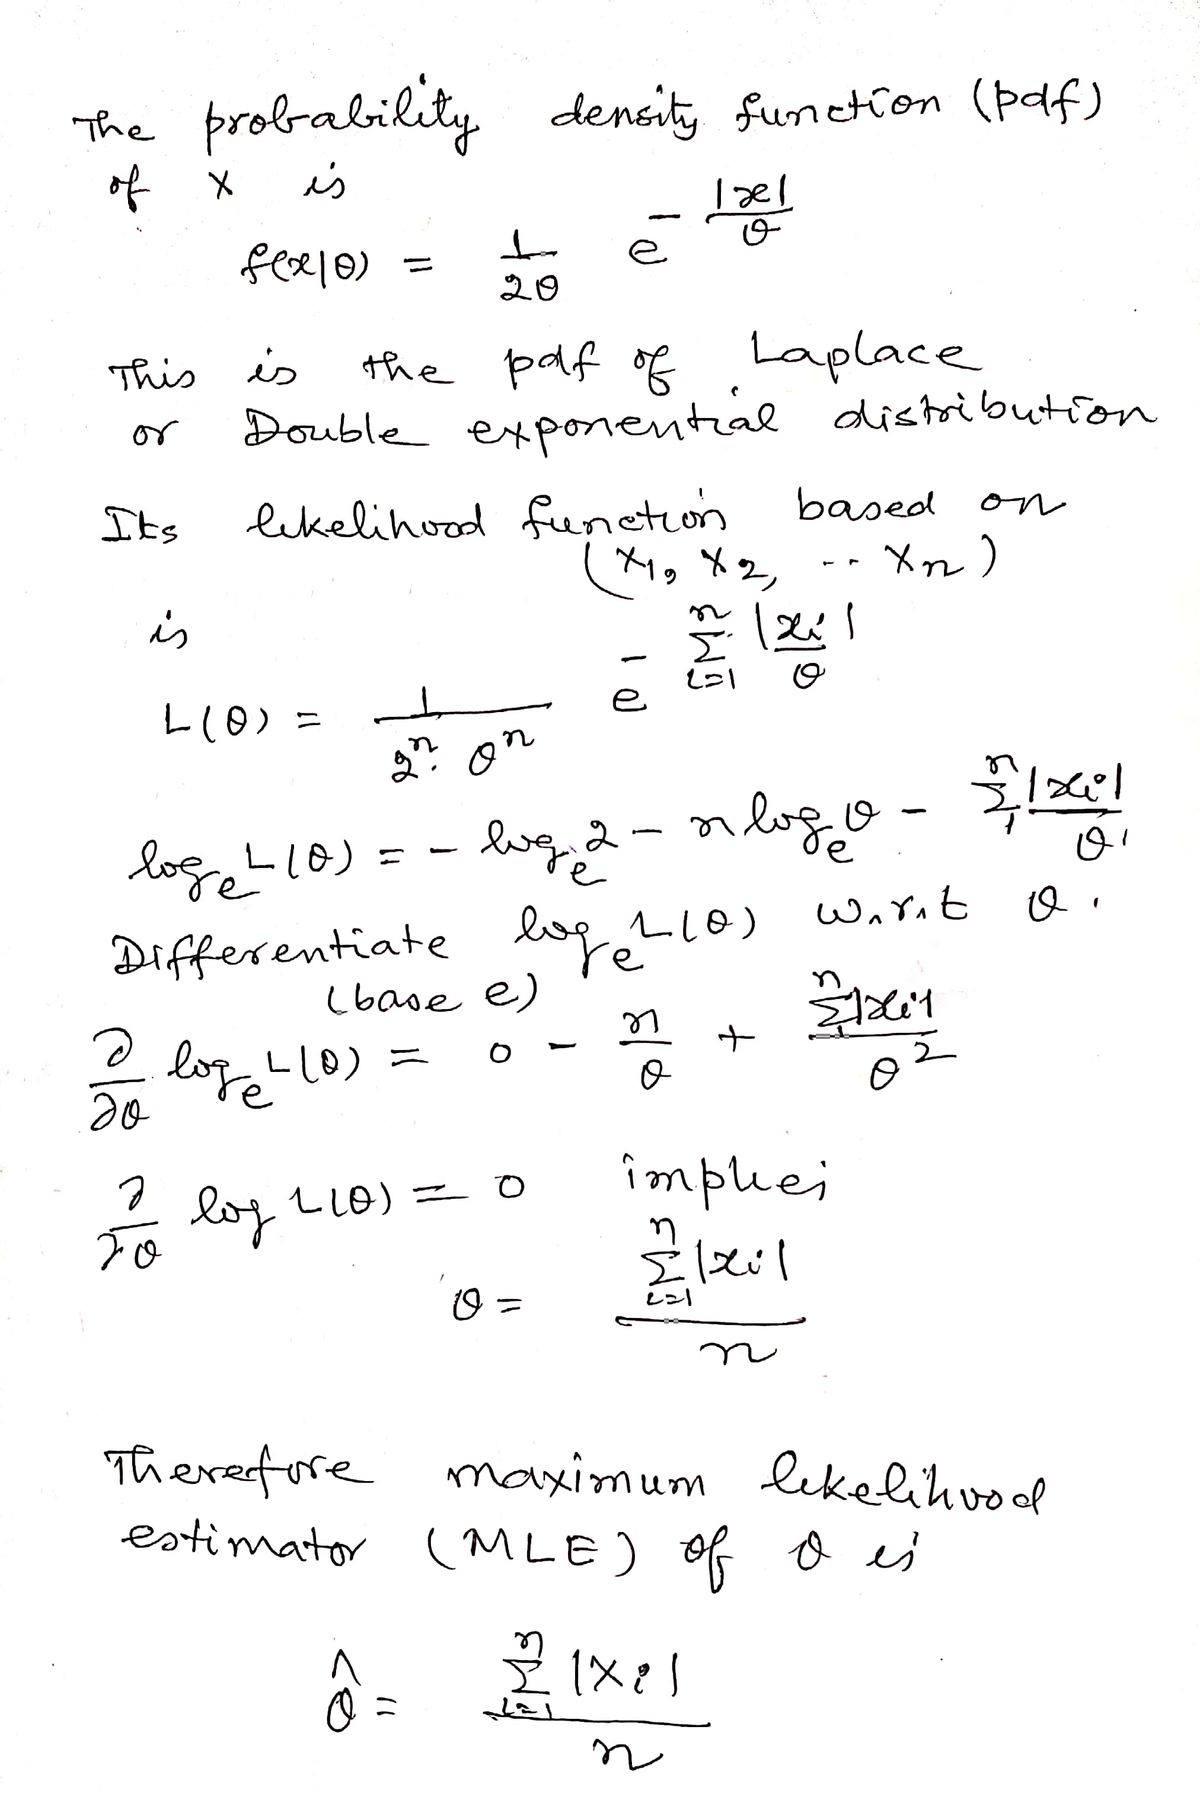 The probability density function (pdf)
of X is
f(x|θ) = 1/2θ e^-|x|/θ
This is the pdf of Laplace
or Double exponential distribution
Its likelihood function based on
(X1, X2, .. Xn)
is
L(θ) = 1/(2^n. θ^n) e^-Σ_{i=1}^n |xi|/θ
log_e L(θ) = - log_e 2 - n log_e θ - Σ_1^n |xi|/θ
Differentiate log_e L(θ) w.r.t θ.
(base e)
∂/∂θ log_e L(θ) = 0 - n/θ + Σ_1^n |xi|/θ^2
∂/∂θ log L(θ) = 0 implies
θ = Σ_{i=1}^n |xi| / n
Therefore maximum likelihood
estimator (MLE) of θ is
θ̂ = Σ_{i=1}^n |Xi| / n